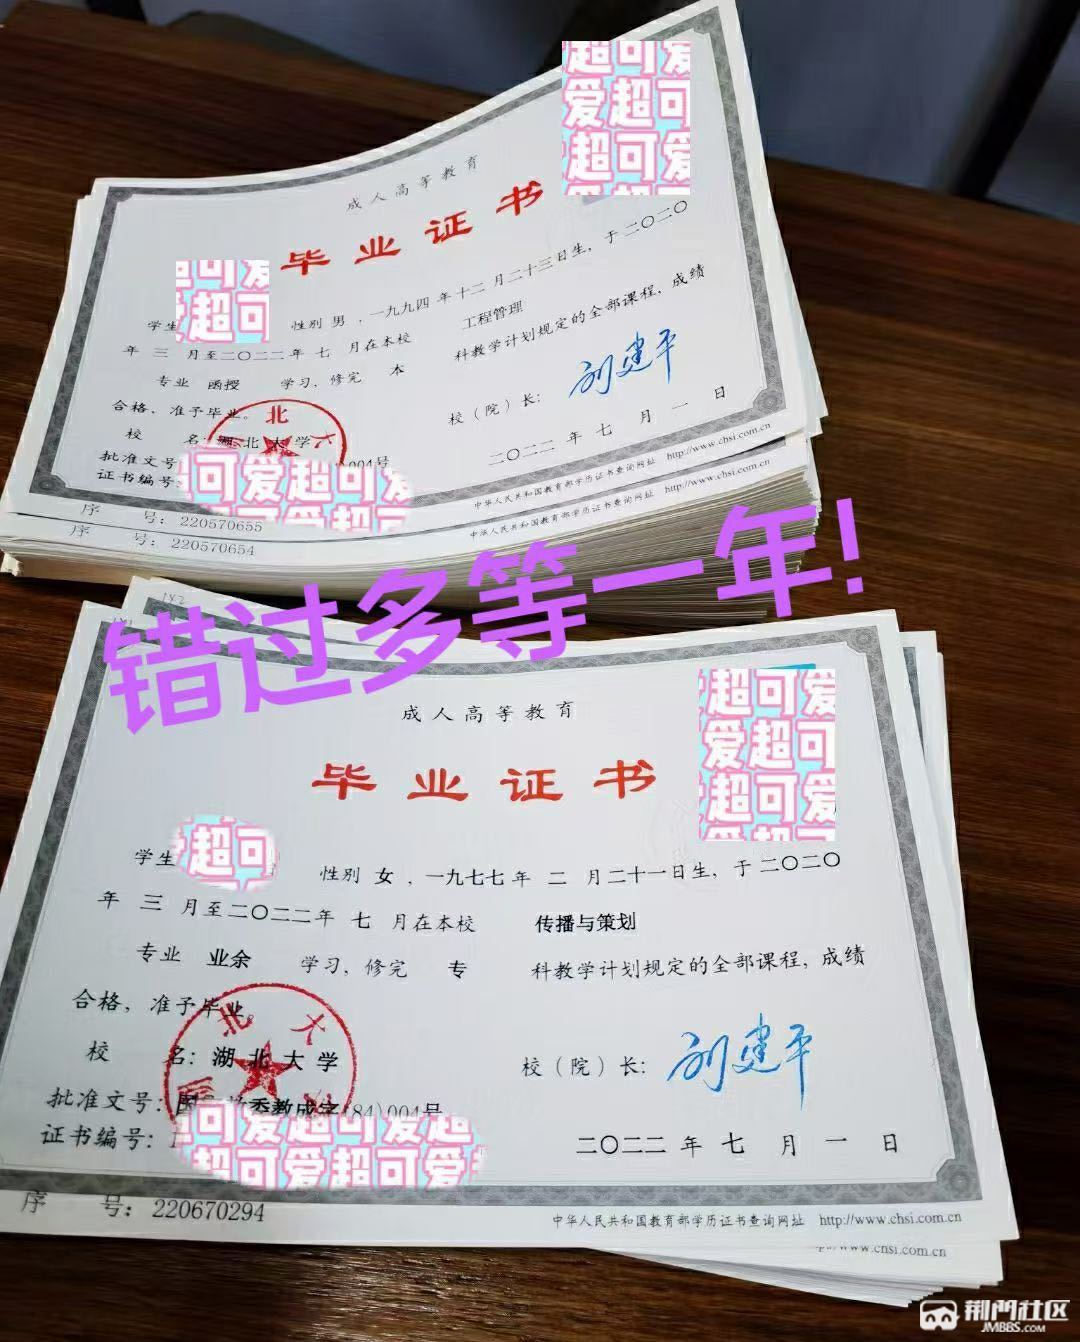 超可爱
爱超可
超可爱
成人高等教育
毕业证书
可爱
超可
学生 性别 男 ，一九九四 年 十二 月 二十三日生，于 二〇二〇
年 三 月至二〇二二年 七 月在本校 工程管理
专业 函授 学习，修完 本 科教学计划规定的全部课程，成绩
合格，准予毕业。
校（院）长： 刘建平
校 名：湖北大学
批准文号 004号
证书编号：
二〇二二 年 七 月 一 日
可爱超可爱
超可爱超可
中华人民共和国教育部学历证书查询网址 http://www.chsi.com.cn
序 号：220570655
中华人民共和国教育部学历证书查询网址 http://www.chsi.com.cn
序 号：220570654
错过多等一年!
成人高等教育
毕业证书
超可爱
爱超可
超可爱
学生 超可 性别 女 ，一九七七 年 二 月 二十一日生，于 二〇二〇
年 三 月至二〇二二年 七 月在本校 传播与策划
专业 业余 学习，修完 专 科教学计划规定的全部课程，成绩
合格，准予毕业。
校 名：湖北大学
校（院）长： 刘建平
批准文号： 教成字(84)004号
证书编号：
可爱超可爱超
超可爱超可爱
二〇二二 年 七 月 一 日
序 号：220670294
中华人民共和国教育部学历证书查询网址 http://www.chsi.com.cn
www.chsi.com.cn
荆门社区
JMBBS.COM